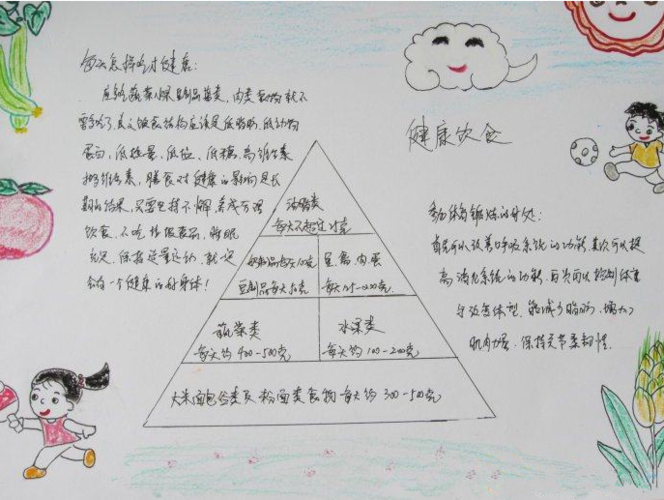 每天怎样吃才健康:
应多吃蔬菜水果豆制品菌类,肉类食物就不
需多吃了,
低热量、低盐、低糖、高维生素
膳食对健康的影响是长
期的结果,只要坚持不懈养成合理
饮食,不吃垃圾食品,睡眠
充足,保持适量运动,就一定
会有一个健康的好身体!
健康饮食
油脂类
每天不超过25克
奶制品每天100克
豆制品每天50克
鱼、禽、肉、蛋
每天125-200克
蔬菜类
每天约400-500克
水果类
每天约100-200克
大米面包谷类及粉面类食物每天约300-500克
参加体育锻炼的好处:
首先可以改善呼吸系统的功能,其次可以提
高消化系统的功能,再次可以控制体重
与改变体型,能减少脂肪,增加
肌肉力量,保持关节柔韧性.